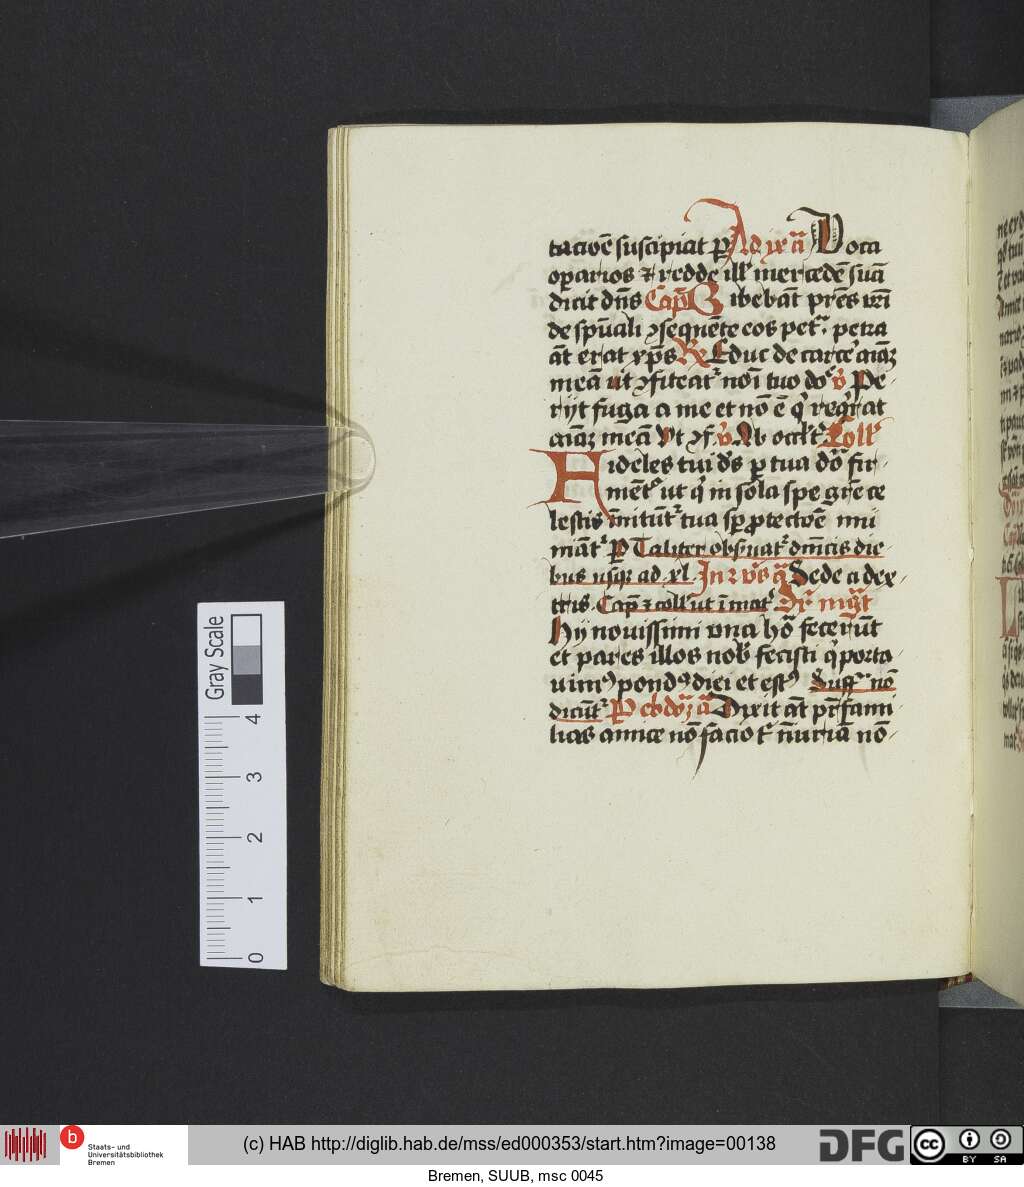 tacōē suscipiat p̄ Ad ix ā Voca
oꝑarios ⁊ redde ill' mercedē suā
dicit dn̄s Cap̄ Bibebāt pr̄es vr̄i
de sp̄uali ꝯsequēte eos pet͛ petra
āt erat xp̄s R̄ Educ de carce͛ aīaꝫ
meā ut ꝯfiteat͛ noī tuo do͛ v̄ Pe-
rijt fuga a me et nō ē q̇ reqͥrat
aīaꝫ meā Vt ꝯf v̄ Ab occl't͛ Coll'
Fideles tui ds̄ ꝑtua dō fir-
mēt͛ ut q̇ in sola spe grē ce
lestis īnitūt͛ tua sꝑ ꝓtectōē mu
niāt͛ P̄ Taliter obsr̄uat͛ dn̄icis die
bus usqꝫ ad xl. In 2 vr̄s ā Sede a dex-
tris. Cap̄ ⁊ coll' ut ī mat͛ Sr̄ mgt̄
Hij novissimi vna hō fecerūt
et pares illos nob' fecisti q̇ porta
uimꝰ pondꝰ diei et estꝰ Suff͛ nō
dicūt͛ P ebdoꝫ ā Dixit āt pr̄ fami
lias amice nō facio t͛ īn̄uriā nō-
Gray Scale
4
3
2
1
0
b
Staats- und
Universitätsbibliothek
Bremen
(c) HAB http://diglib.hab.de/mss/ed000353/start.htm?image=00138
DFG
cc
BY SA
Bremen, SUUB, msc 0045